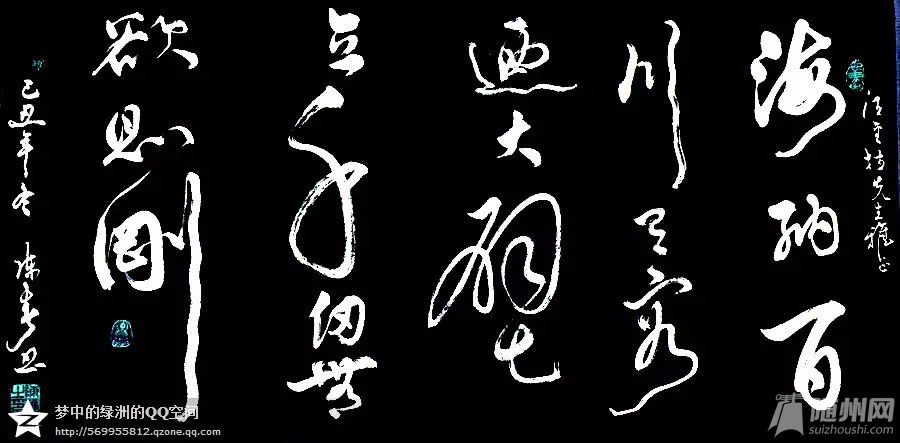 先生雅正
海纳百
川有容
迺大壁
立千仞無
欲則剛
己丑年冬 陳春
梦中的绿洲的QQ空间
http://569955812.qzone.qq.com
随州网
suizhoushi.com